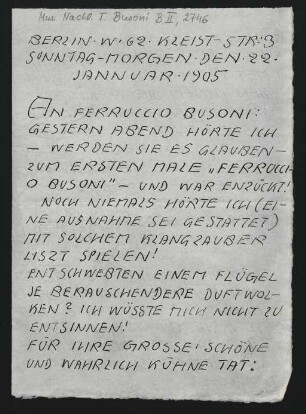 Mus. Nachl. F. Busoni B II, 2746
BERLIN · W · 62 · KLEIST-STR. 3
SONNTAG-MORGEN · DEN · 22.
JANNUAR · 1905
AN FERRUCCIO BUSONI:
GESTERN ABEND HÖRTE ICH
– WERDEN SIE ES GLAUBEN –
ZUM ERSTEN MALE „FERRUCCI
O BUSONI" – UND WAR ENZÜCKT!
NOCH NIEMALS HÖRTE ICH (EI-
NE AUSNAHME SEI GESTATTET)
MIT SOLCHEM KLANGZAUBER
LISZT SPIELEN!
ENTSCHWEBTEN EINEM FLÜGEL
JE BERAUSCHENDERE DUFTWOL-
KEN? ICH WÜSSTE MICH NICHT ZU
ENTSINNEN!
FÜR IHRE GROSSE! SCHÖNE
UND WAHRLICH KÜHNE TAT: